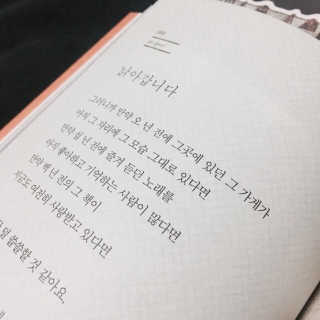 닮아갑니다
그러니까 만약 오 년 전에 그곳에 있던 그 가게가
아직 그 자리에 그 모습 그대로 있다면
만약 십 년 전에 즐겨 듣던 노래를
아직 좋아하고 기억하는 사람이 많다면
만약 백 년 전의 그 책이
지금도 여전히 사랑받고 있다면
덜 쓸쓸할 것 같아요.